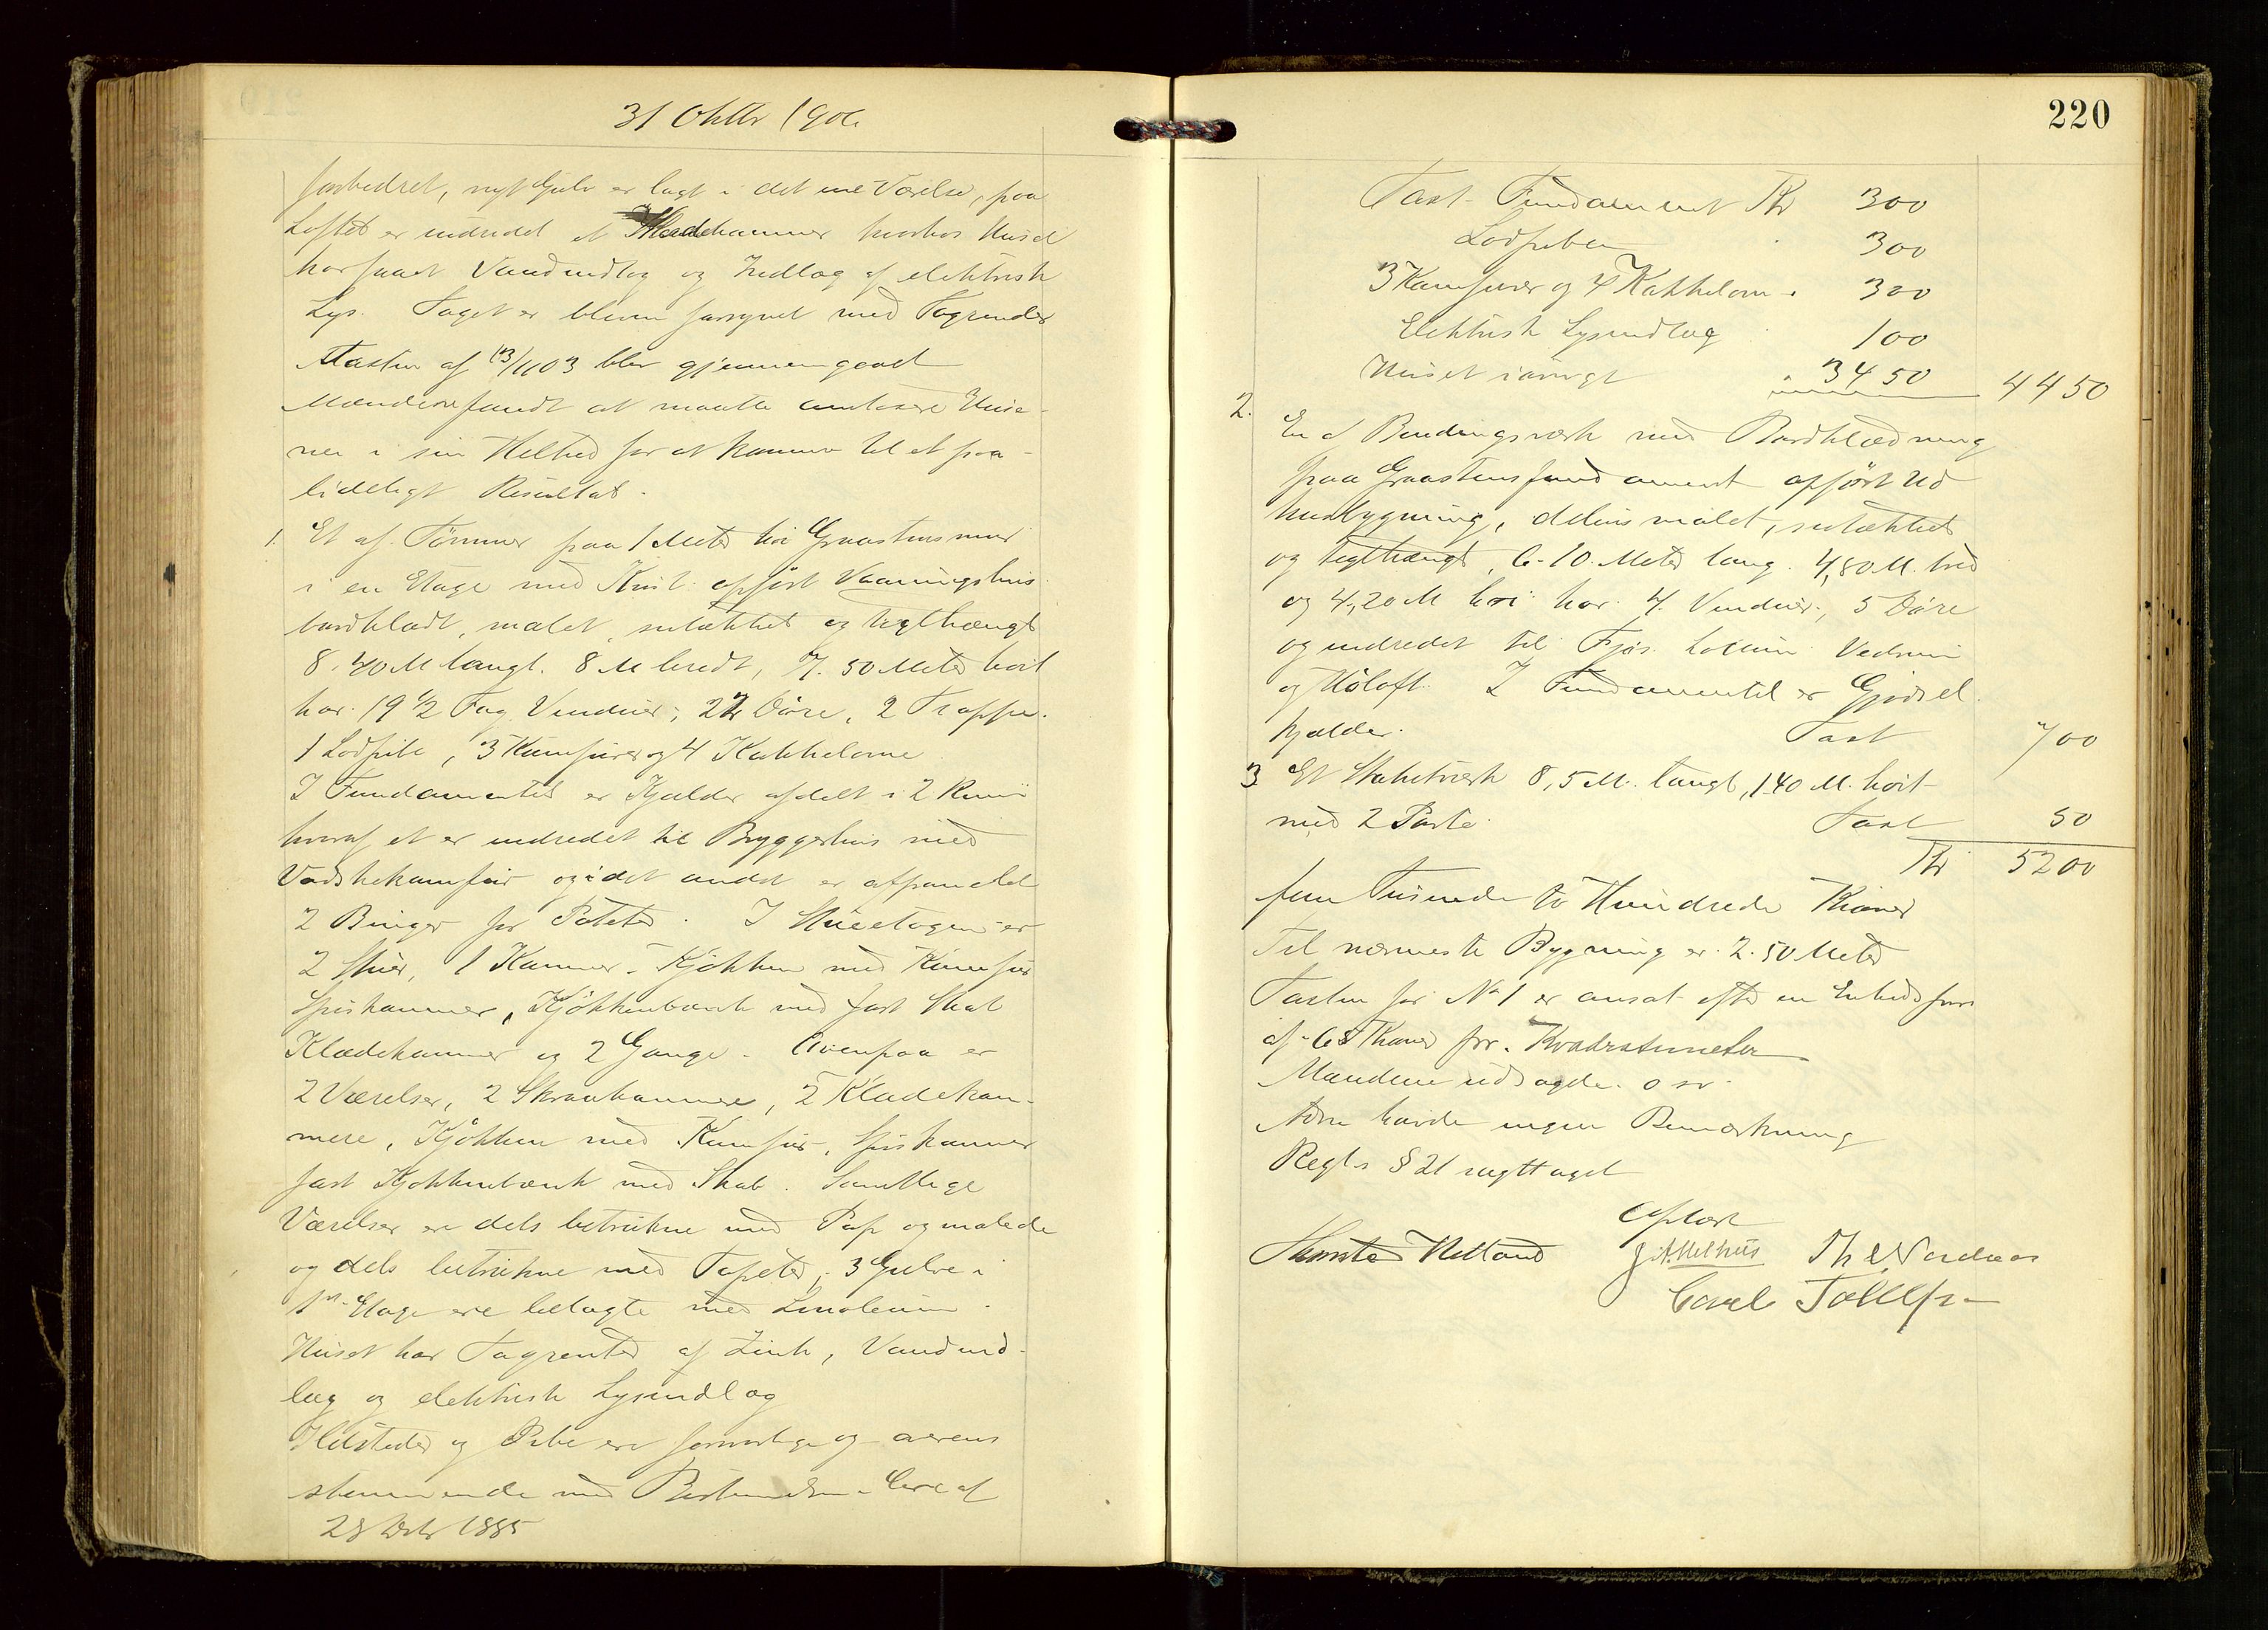 31 Oktbr 1906
forbedret, nyt Gulv er lagt i det ene Værelse, paa
Loftet er indredet et Klædekammer hvorhos Huset
har faaet Vandindlæg og Indlæg af elektrisk
Lys. Taget er bleven forsynet med Tagrender
Taxten af 13/11 03 blev gjennemgaaet
Mændene fandt at maatte omtaxere Husene
ne i sin Helhed for at komme til et paa-
lideligt Resultat.
1. Et af Tømmer paa 1 Meter høi Graastensmur
i en Etage med Kvist opført Vaaningshus
bordklædt, malet, sutækket og teglhængt
8.40 M langt. 8 M bredt, 7.50 Meter høit
har 19 1/2 Fag Vinduer, 22 Døre, 2 Trapper
1 Lodpibe, 3 Komfurer og 4 Kakkelovne
I Fundamentet er Kjælder afdelt i 2 Rum
hvoraf et er indredet til Bryggerhus med
Vadskekomfur og i det andet er afpanelet
2 Binger for Poteter. I Stueetagen er
2 Stuer, 1 Kammer, Kjøkken med Komfur
Spiskammer, Kjøkkenbænk med fast Skab
Klædekammer og 2 Gange. Ovenpaa er
2 Værelser, 2 Skraakammere, 2 Klædekam-
mere, Kjøkken med Komfur, Spiskammer
fast Kjøkkenbænk med Skab. Samtlige
Værelser ere dels betrukne med Pap og malede
og dels betrukne med Tapeter, 3 Gulve i
1ste Etage ere belagte med Linoleum.
Huset har Tagrender af Zink, Vandind-
læg og elektrisk Lysindlæg
Ildsteder og Pibe ere forsvarlige og overens
stemmende med Bestemmelsen i Lov af
28 1885
220
Taxt. Fundament Kr 300
Lodpiben 300
3 Komfurer og 4 Kakkelovn 300
Elektrisk Lysindlæg 100
Huset iøvrigt 3450 4450
2.
En af Bindingsværk med Bordklædning
paa Graastensfundament opført Ud
husbygning, delvis malet, sutækket
og teglhængt, 6.10 Meter lang. 4,80 M. bred
og 4,20 M høi har 4 Vinduer, 5 Døre
og indredet til Fjøs. Vedrum
og Høloft. I Fundamentet er Gjødsel
kjælder. Taxt 700
3 Et Stakitværk 8,5 M. langt, 1.40 M. høit
med 2 Porte. Taxt 50
Kr 5200
fem Tusinde to Hundrede Kroner
Til nærmeste Bygning er 2.50 Meter
Taxten for No 1 er ansat efter en Enhedspris
af 65 Kroner pr. Kvadratmeter
Mændene udsagde o sv.
havde ingen Bemærkning
Regl. § 21 iagttaget
Oplæst
Helland J. A. Melhus Th. L. Nordaas
Carl Tollefs